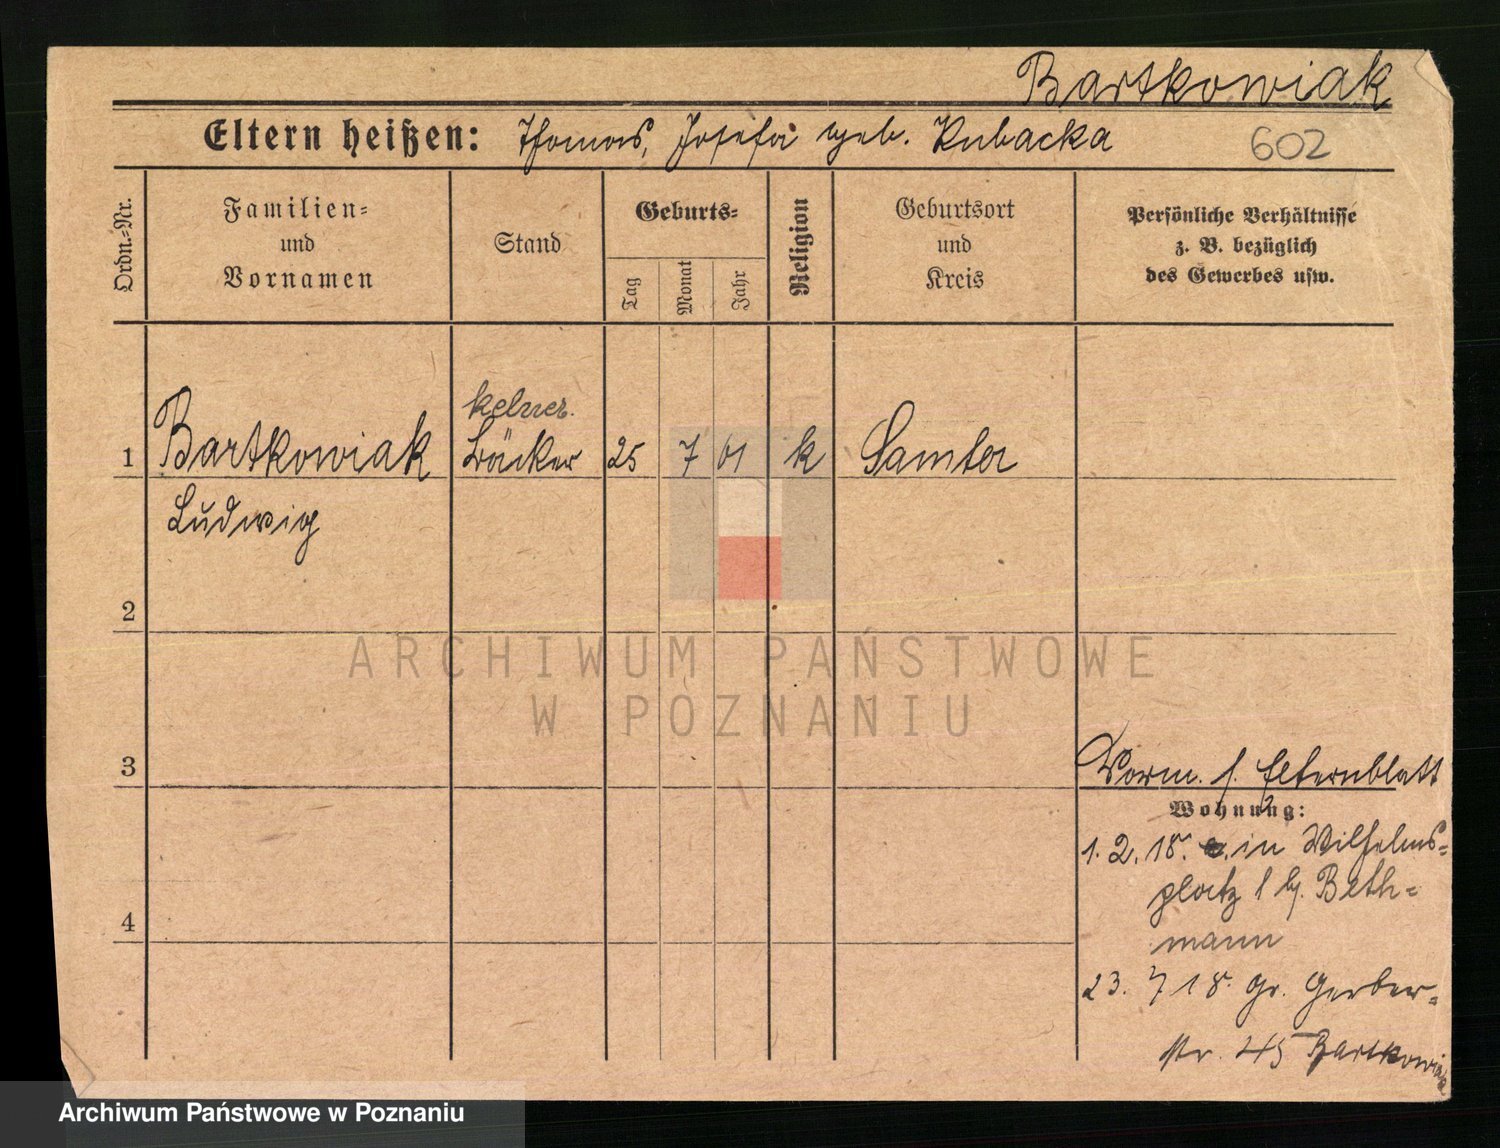 Bartkowiak
Eltern heißen: Thomas, Josefa geb. Kubacka
602
Ordn.-Nr.
Familien-
und
Vornamen
Stand
Geburts-
Tag
Monat
Jahr
Religion
Geburtsort
und
Kreis
Persönliche Verhältnisse
z. B. bezüglich
des Gewerbes usw.
kelner.
1 Bartkowiak Bäcker 25 7 01 k Samter
Ludwig
2
ARCHIWUM PAŃSTWOWE
W POZNANIU
3
Vorm. s. Elternblatt
Wohnung:
1. 2. 18. in Wilhelms-
platz 1 b. Beth-
mann
4
23. 7 18. Gr. Gerber-
str. 45 Bartkowiak
Archiwum Państwowe w Poznaniu